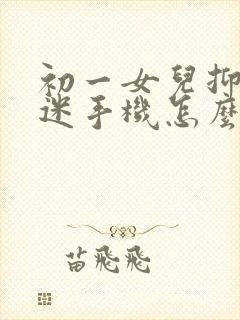 初一女兒抑
迷手機怎麼
苗飛飛